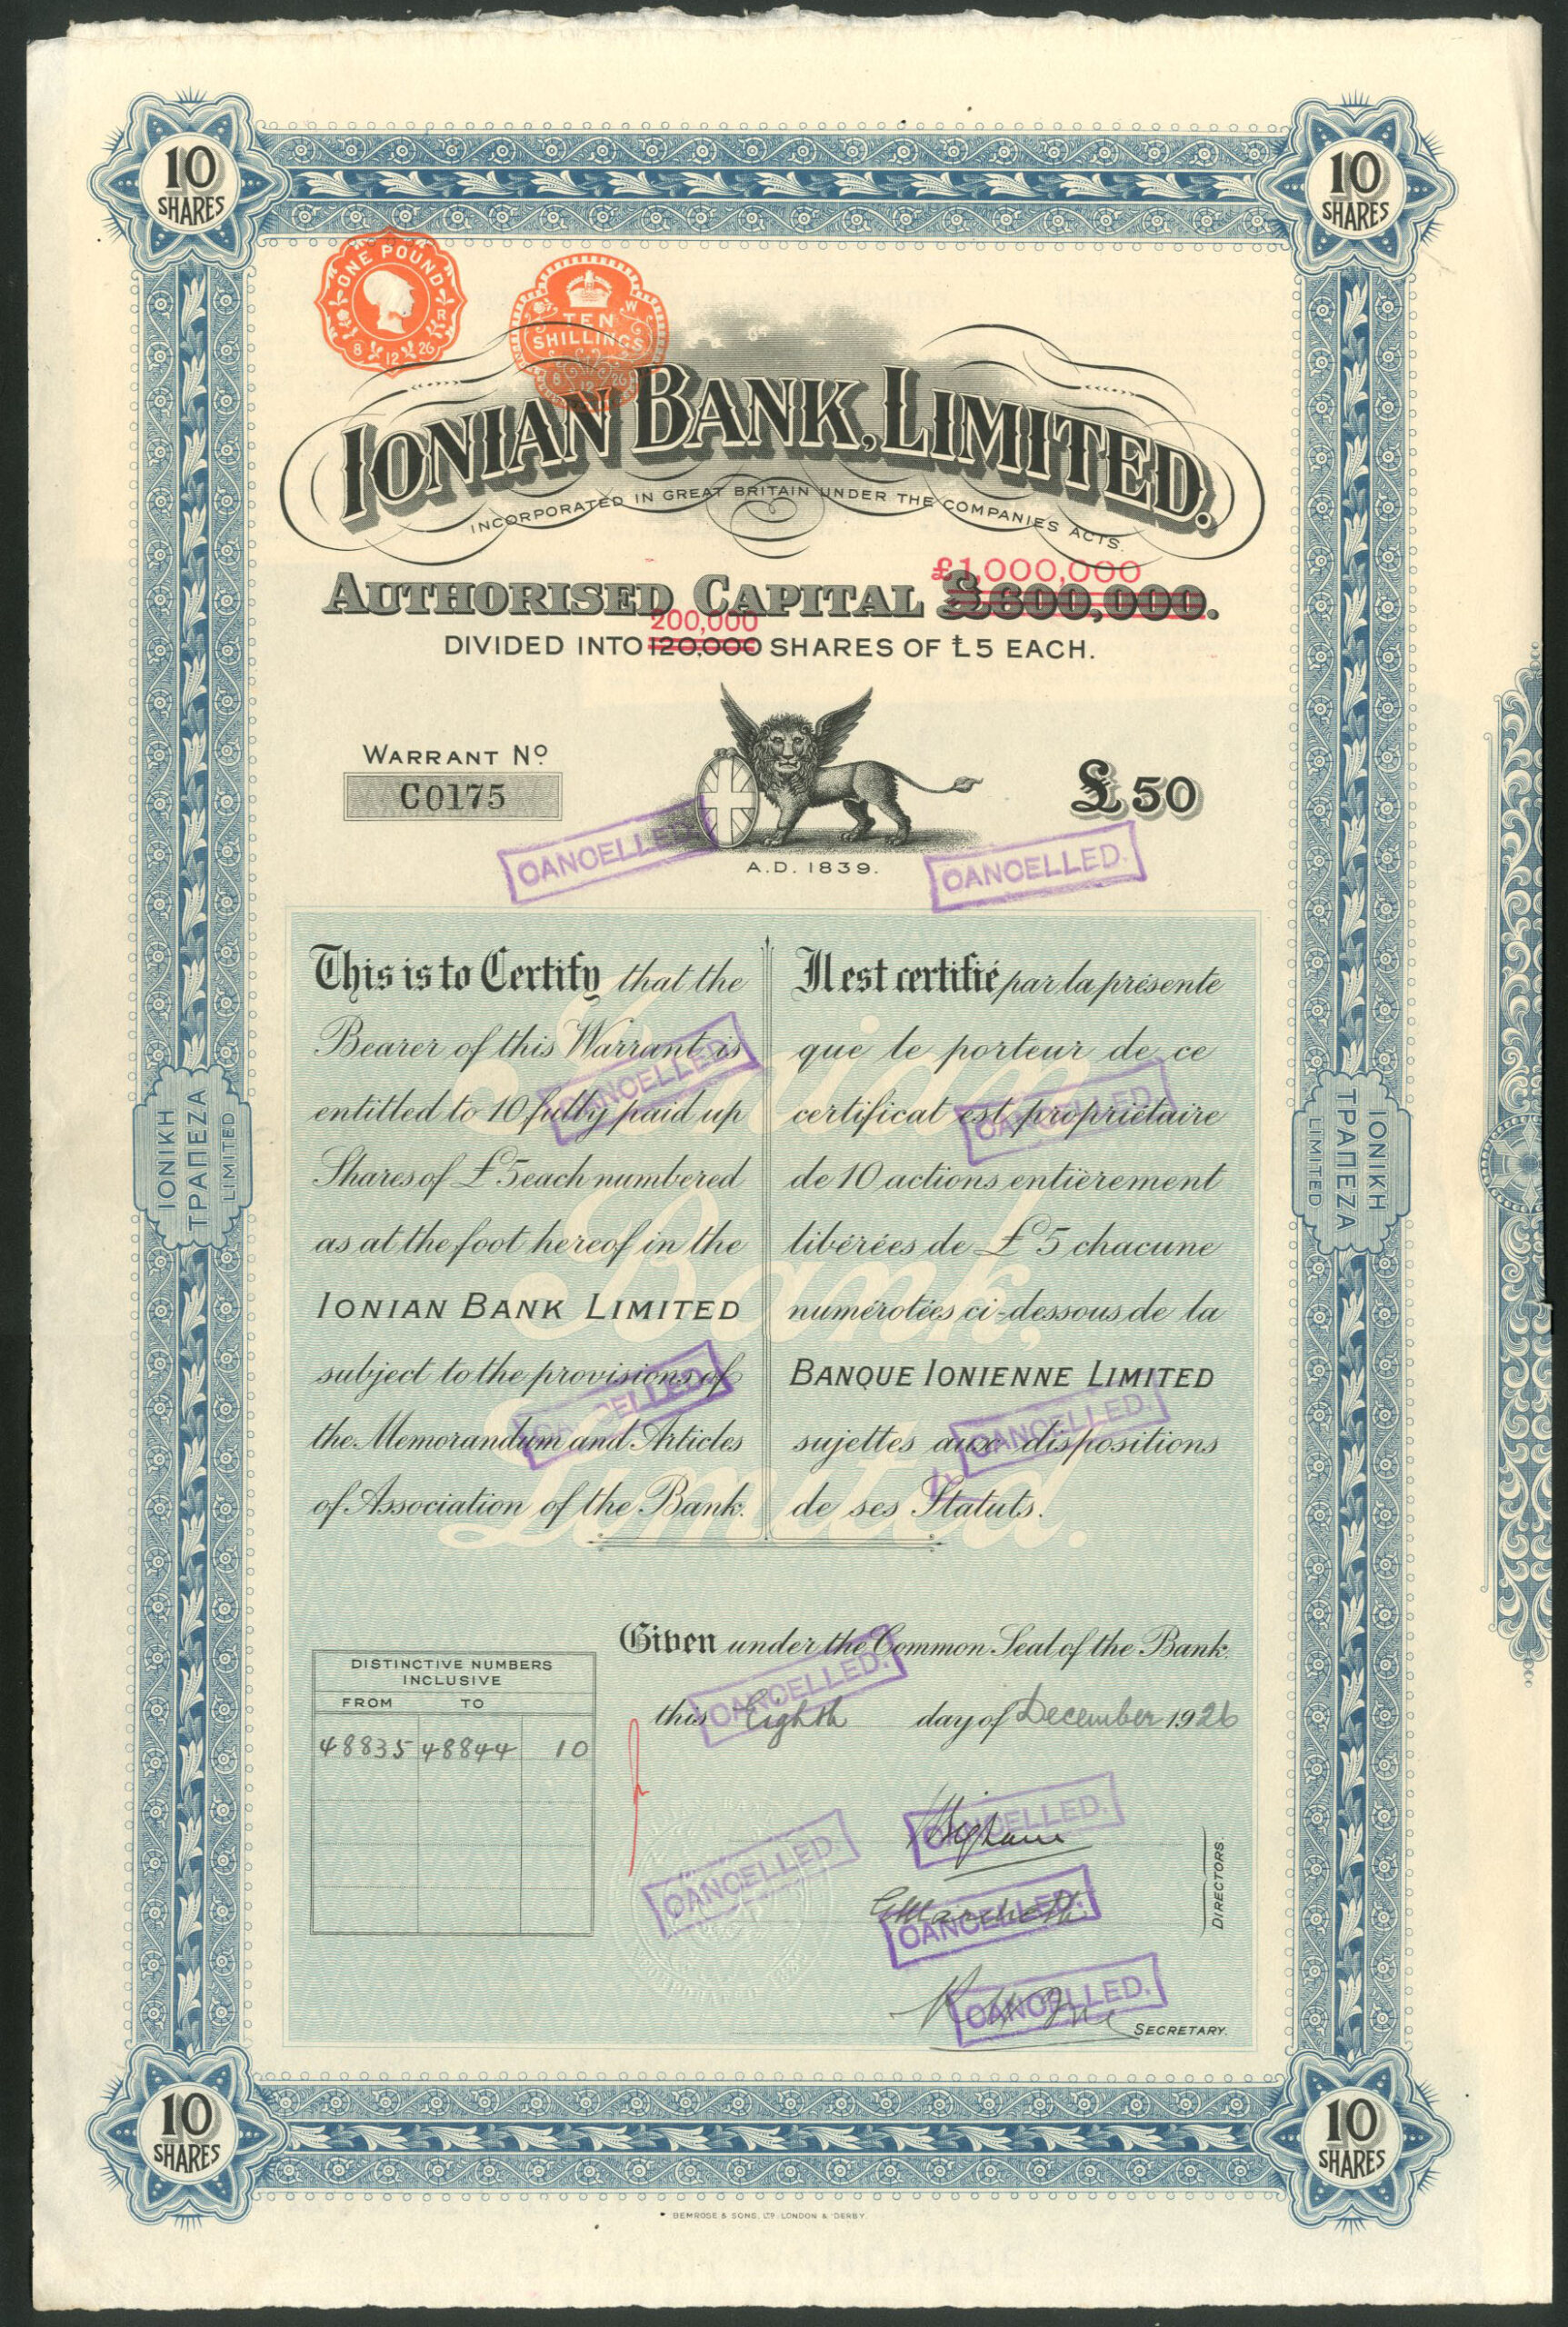 10
SHARES
10
SHARES
ONE POUND
8 12 26
TEN
SHILLINGS
8 12 26
IONIAN BANK, LIMITED.
INCORPORATED IN GREAT BRITAIN UNDER THE COMPANIES ACTS.
£1,000,000
AUTHORISED CAPITAL £600,000.
200,000
DIVIDED INTO 120,000 SHARES OF £5 EACH.
WARRANT Nº
C0175
£50
CANCELLED.
CANCELLED.
A.D. 1839.
This is to Certify that the
Bearer of this Warrant is
entitled to 10 fully paid up
Shares of £5 each numbered
as at the foot hereof in the
IONIAN BANK LIMITED
subject to the provisions of
the Memorandum and Articles
of Association of the Bank.
Il est certifié par la présente
que le porteur de ce
certificat est propriétaire
de 10 actions entièrement
libérées de £5 chacune
numérotées ci-dessous de la
BANQUE IONIENNE LIMITED
sujettes aux dispositions
de ses Statuts.
Ionian
Bank,
Limited.
CANCELLED.
CANCELLED.
CANCELLED.
CANCELLED.
ΙΟΝΙΚΗ
ΤΡΑΠΕΖΑ
LIMITED
ΙΟΝΙΚΗ
ΤΡΑΠΕΖΑ
LIMITED
Given under the Common Seal of the Bank.
this Eighth day of December 1926
CANCELLED.
DISTINCTIVE NUMBERS
INCLUSIVE
FROM TO
48835 48844 10
CANCELLED.
CANCELLED.
CANCELLED.
DIRECTORS.
CANCELLED.
SECRETARY.
10
SHARES
10
SHARES
BEMROSE & SONS, LTD. LONDON & DERBY.